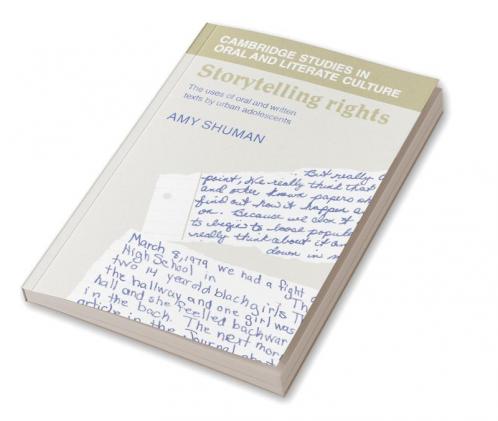 CAMBRIDGE STUDIES IN
ORAL AND LITERATE CULTURE
Storytelling rights
The uses of oral and written
texts by urban adolescents
AMY SHUMAN
But really
point; We really think that
and other known papers
find out how it happen
on. Because we
to begin to boost popul
really think about it an
down in s
March 8, 1979 we had a fight
High School in
two 14 year old black girls
the hallway and one girl was
hall and she feelled backwar
in the back. The next mor
article in the Journal about